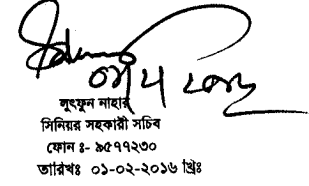 লুৎফুন নাহার
সিনিয়র সহকারী সচিব
ফোন ঃ- ৯৫৭৭২৩০
তারিখঃ ০১-০২-২০১৬ খ্রিঃ